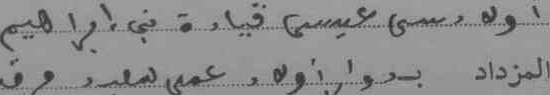 اولاد سي عيسى قيادة بني ابراهيم
المزداد بدوار اولاد عمي سعيد فرقة